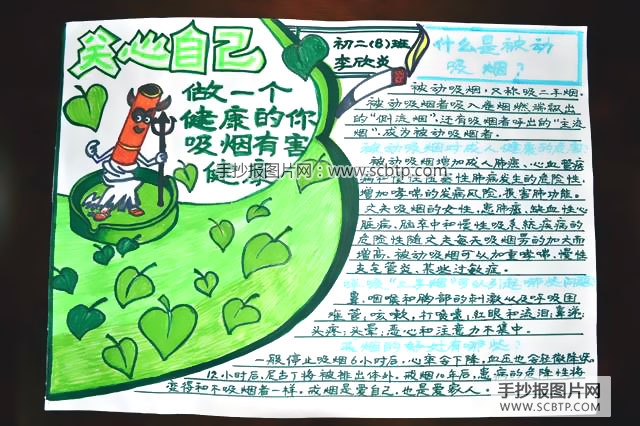 关心自己
初二(8)班
李欣炎
什么是被动
吸烟？
做一个
健康的你
吸烟有害
健康
手抄报图片网：www.scbtp.com
被动吸烟，又称吸二手烟。
被动吸烟者吸入卷烟燃端散出
的“侧流烟”，还有吸烟者呼出的“主流
烟”，成为被动吸烟者。
被动吸烟对成人健康的危害
被动吸烟增加成人肺癌、心血管病
性肺病发生的危险性，
增加哮喘的发病风险，损害肺功能。
丈夫吸烟的女性，患肺癌、缺血性心
脏病、脑卒中和慢性吸系统疾病的
危险性随丈夫每天吸烟男的加大而
增高。被动吸烟可以加重哮喘、慢性
支气管炎、某些过敏症。
吸“二手烟”可以引起哪些问题
鼻、咽喉和胸部的刺激以及呼吸困
难管，咳嗽，打喷嚏，红眼和流泪，鼻涕；
头疼；头晕；恶心和注意力不集中。
灭烟的好处有哪些？
一般停止吸烟6小时后，心率会下降，血压也会轻微降低。
12小时后，尼古丁将被排出体外。戒烟10年后，患病的危险性将
变得和不吸烟者一样。戒烟是爱自己，也是爱家人。
手抄报图片网
WWW.SCBTP.COM